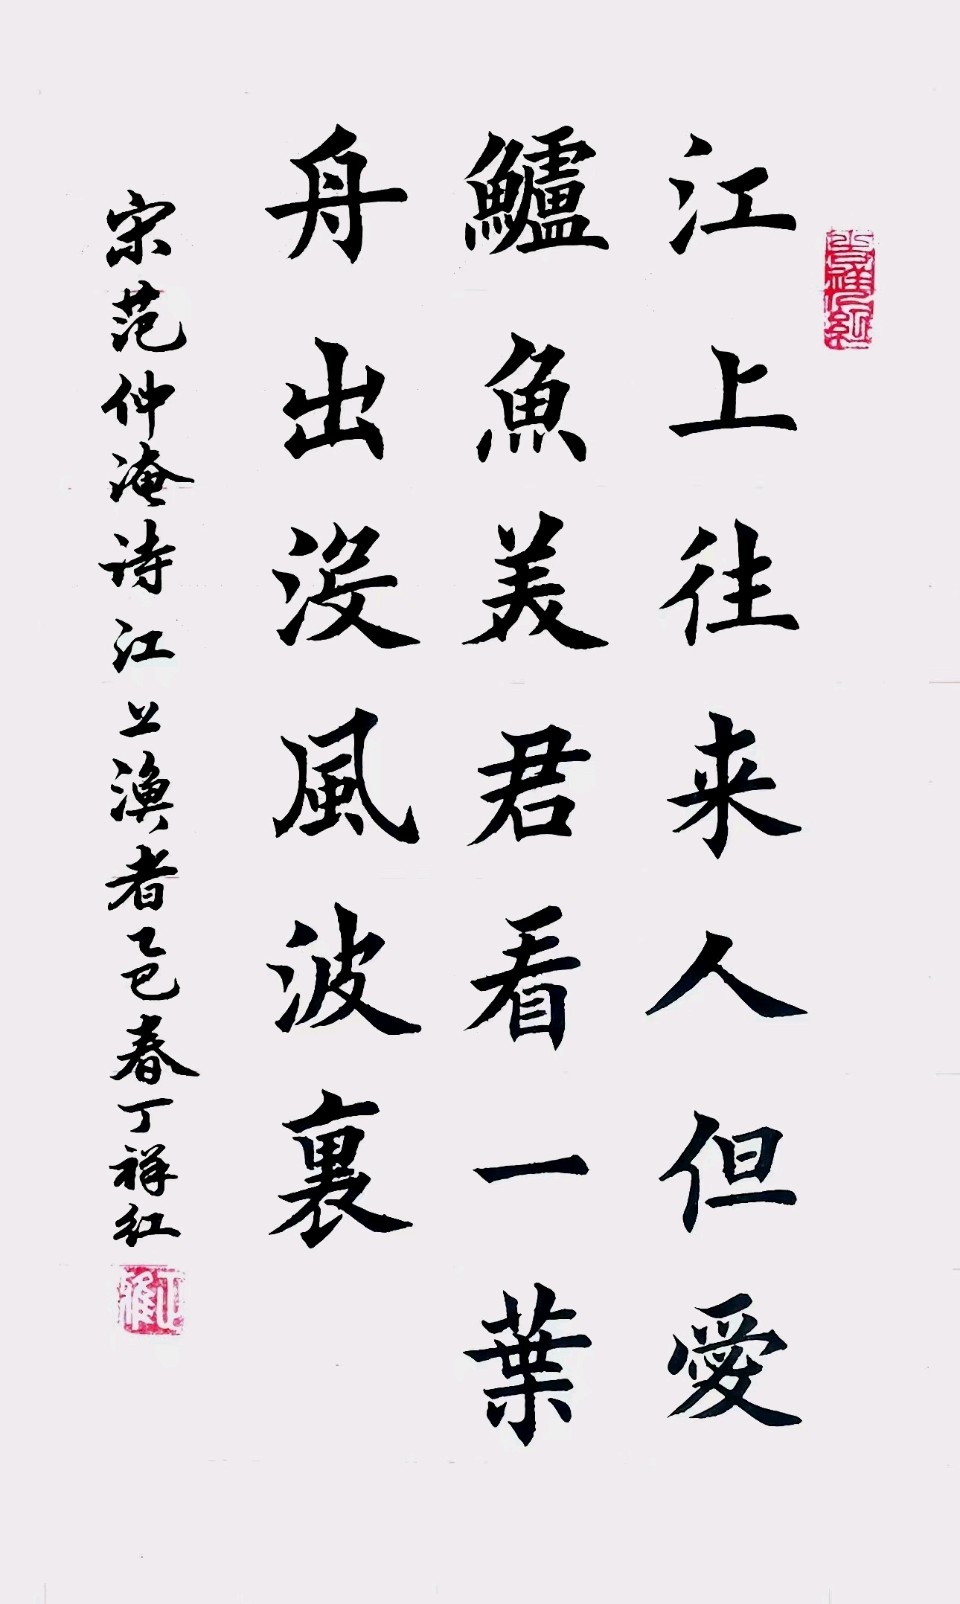 江上往来人但愛
鱸魚美君看一葉
舟出没風波裏
宋范仲淹诗江上漁者乙巳春丁祥红